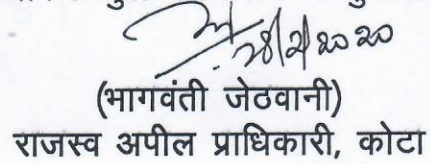 28/2/2020
(भागवंती जेठवानी)
राजस्व अपील प्राधिकारी, कोटा